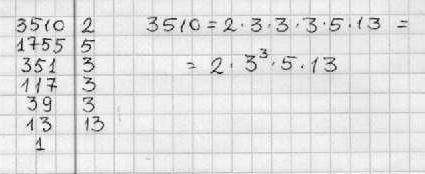 3510 | 2
1755 | 5
351 | 3
117 | 3
39 | 3
13 | 13
1 |
3510 = 2 · 3 · 3 · 3 · 5 · 13 =
= 2 · 3³ · 5 · 13